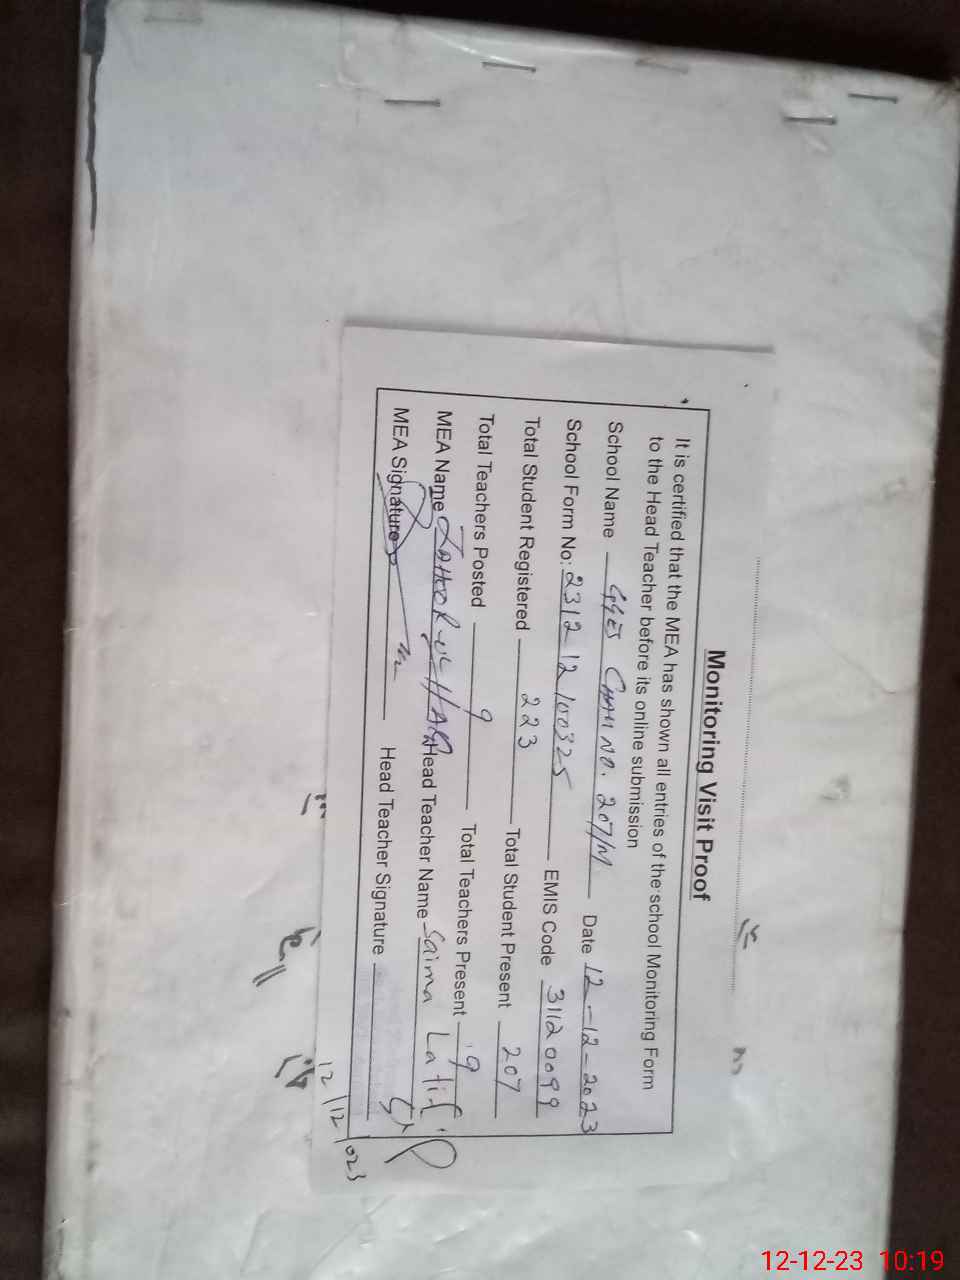 Monitoring Visit Proof
It is certified that the MEA has shown all entries of the school Monitoring Form
to the Head Teacher before its online submission
School Name GGES Chak No. 207/M Date 12-12-2023
School Form No: 231212100325 EMIS Code 31120099
Total Student Registered 223 Total Student Present 207
Total Teachers Posted 9 Total Teachers Present 9
MEA Name Zahoor-ul-Haq Head Teacher Name Saima Latif
MEA Signature Head Teacher Signature
12/12/023
12-12-23 10:19